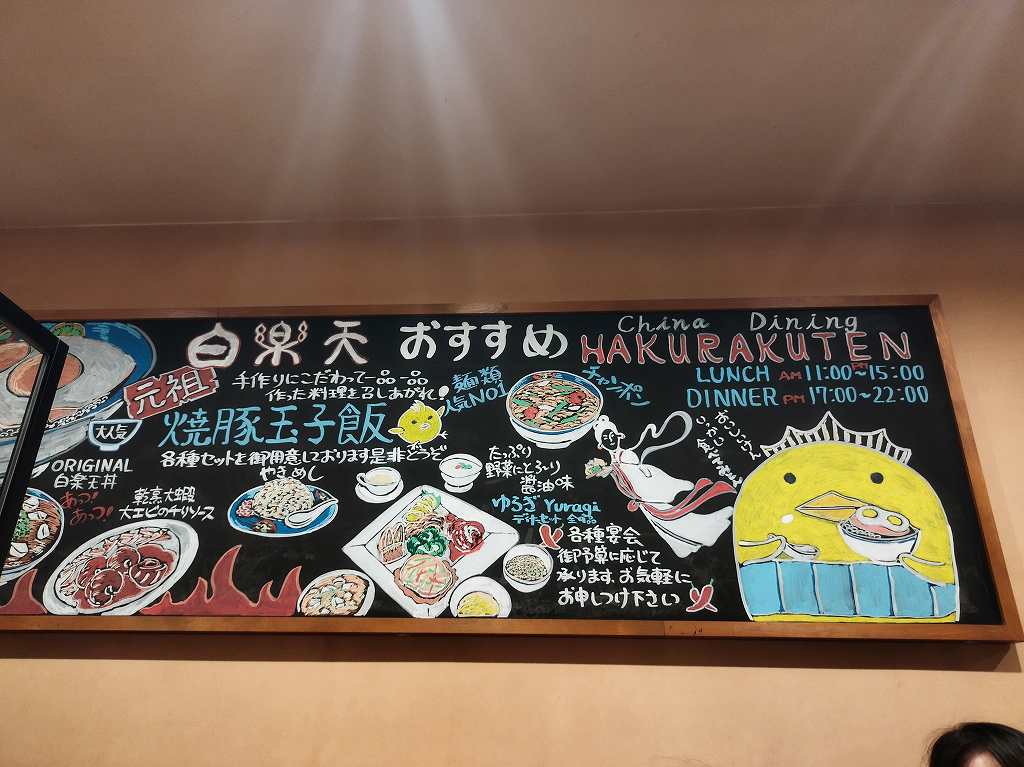 白楽天 おすすめ
China Dining
HAKURAKUTEN
LUNCH AM 11:00~PM 15:00
DINNER PM 17:00~22:00
元祖
手作りにこだわって一品一品
作った料理を召しあがれ!
焼豚玉子飯
各種セットを御用意しております是非どうぞ
大人気
ORIGINAL
白楽天丼
やきめし
あっつ!
あっつ!
乾烹大蝦
大エビのチリソース
麺類
人気NO1
チャンポン
たっぷり
野菜にとろーり
醤油味
ゆらぎ Yuragi
各種宴会
御予算に応じて
承ります。お気軽に
お申しつけ下さい
いっぱい
食べてね